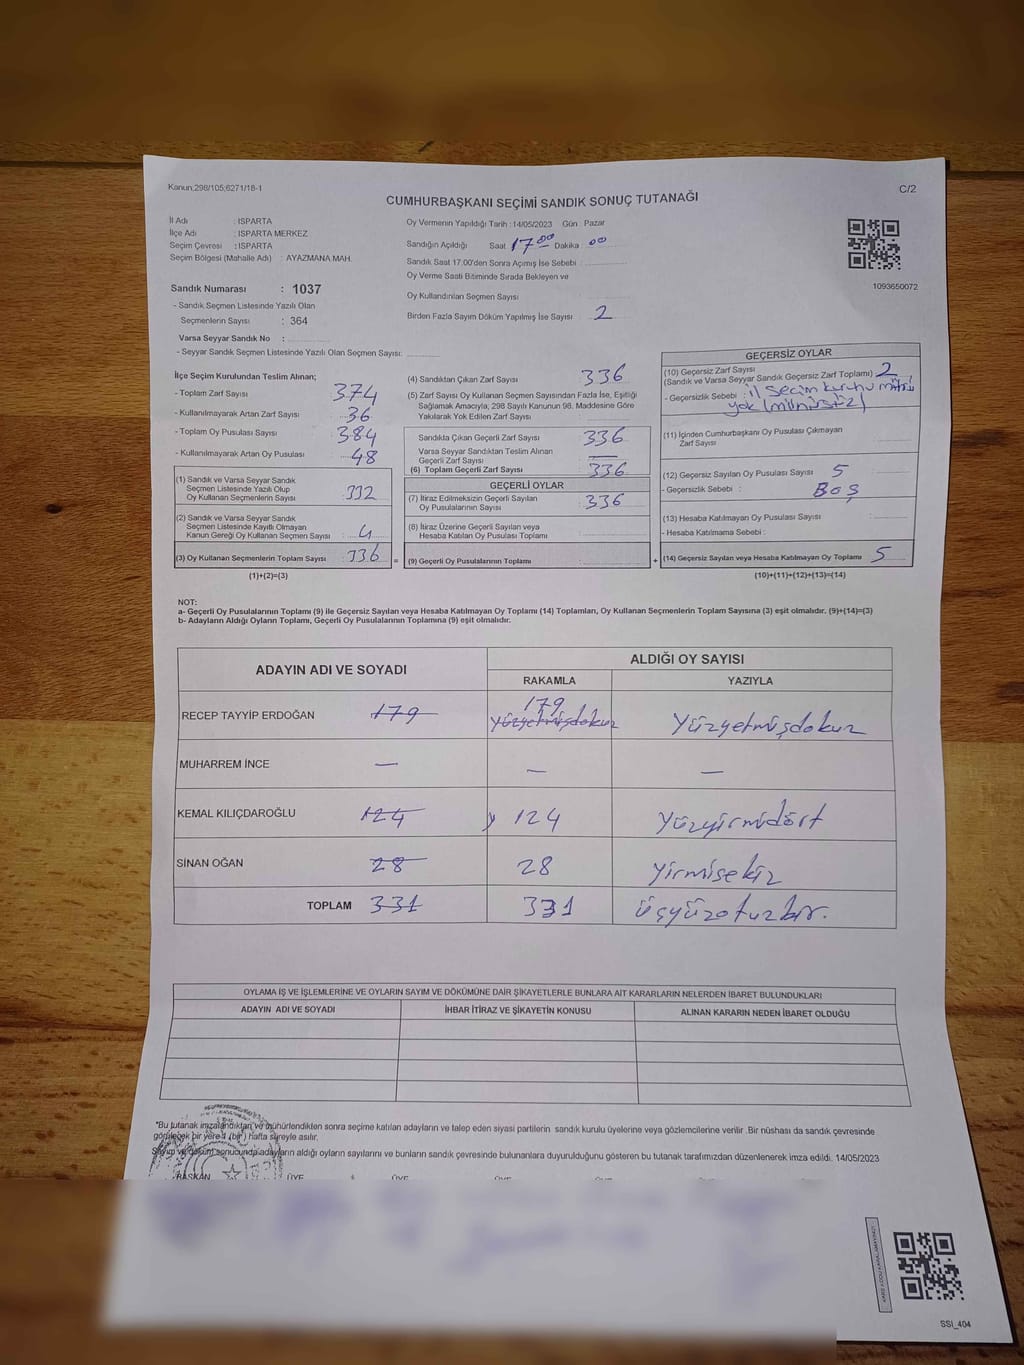 Kanun;298/105;6271/18-1
C/2
CUMHURBAŞKANI SEÇİMİ SANDIK SONUÇ TUTANAĞI
İl Adı : ISPARTA
İlçe Adı : ISPARTA MERKEZ
Seçim Çevresi : ISPARTA
Seçim Bölgesi (Mahalle Adı) : AYAZMANA MAH.
Sandık Numarası : 1037
- Sandık Seçmen Listesinde Yazılı Olan
Seçmenlerin Sayısı : 364
Varsa Seyyar Sandık No :
- Seyyar Sandık Seçmen Listesinde Yazılı Olan Seçmen Sayısı:
Oy Vermenin Yapıldığı Tarih : 14/05/2023 Gün Pazar
Sandığın Açıldığı Saat 17 00 Dakika 00
Sandık Saat 17.00'den Sonra Açımış İse Sebebi :
Oy Verme Saati Bitiminde Sırada Bekleyen ve
Oy Kullandırılan Seçmen Sayısı
Birden Fazla Sayım Döküm Yapılmış İse Sayısı 2
1093650072
İlçe Seçim Kurulundan Teslim Alınan;
- Toplam Zarf Sayısı 374
- Kullanılmayarak Artan Zarf Sayısı 36
- Toplam Oy Pusulası Sayısı 384
- Kullanılmayarak Artan Oy Pusulası 48
(1) Sandık ve Varsa Seyyar Sandık
Seçmen Listesinde Yazılı Olup
Oy Kullanan Seçmenlerin Sayısı 332
(2) Sandık ve Varsa Seyyar Sandık
Seçmen Listesinde Kayıtlı Olmayan
Kanun Gereği Oy Kullanan Seçmen Sayısı 4
(3) Oy Kullanan Seçmenlerin Toplam Sayısı 336 =
(1)+(2)=(3)
(4) Sandıktan Çıkan Zarf Sayısı 336
(5) Zarf Sayısı Oy Kullanan Seçmen Sayısından Fazla İse, Eşitliği
Sağlamak Amacıyla, 298 Sayılı Kanunun 98. Maddesine Göre
Yakılarak Yok Edilen Zarf Sayısı
Sandıkta Çıkan Geçerli Zarf Sayısı 336
Varsa Seyyar Sandıktan Teslim Alınan
Geçerli Zarf Sayısı —
(6) Toplam Geçerli Zarf Sayısı 336
GEÇERLİ OYLAR
(7) İtiraz Edilmeksizin Geçerli Sayılan
Oy Pusulalarının Sayısı 336
(8) İtiraz Üzerine Geçerli Sayılan veya
Hesaba Katılan Oy Pusulası Toplamı
(9) Geçerli Oy Pusulalarının Toplamı +
GEÇERSİZ OYLAR
(10) Geçersiz Zarf Sayısı 2
(Sandık ve Varsa Seyyar Sandık Geçersiz Zarf Toplamı)
- Geçersizlik Sebebi : il seçim kurulu mührü
yok (mühürsüz)
(11) İçinden Cumhurbaşkanı Oy Pusulası Çıkmayan
Zarf Sayısı
(12) Geçersiz Sayılan Oy Pusulası Sayısı 5
- Geçersizlik Sebebi : Boş
(13) Hesaba Katılmayan Oy Pusulası Sayısı
- Hesaba Katılmama Sebebi :
(14) Geçersiz Sayılan veya Hesaba Katılmayan Oy Toplamı 5
(10)+(11)+(12)+(13)=(14)
NOT:
a- Geçerli Oy Pusulalarının Toplamı (9) ile Geçersiz Sayılan veya Hesaba Katılmayan Oy Toplamı (14) Toplamları, Oy Kullanan Seçmenlerin Toplam Sayısına (3) eşit olmalıdır. (9)+(14)=(3)
b- Adayların Aldığı Oyların Toplamı, Geçerli Oy Pusulalarının Toplamına (9) eşit olmalıdır.
ADAYIN ADI VE SOYADI ALDIĞI OY SAYISI
RAKAMLA YAZIYLA
RECEP TAYYİP ERDOĞAN 179 179 yüzyetmişdokuz Yüzyetmişdokuz
MUHARREM İNCE — — —
KEMAL KILIÇDAROĞLU 124 y 124 Yüzyirmidört
SİNAN OĞAN 28 28 Yirmisekiz
TOPLAM 331 331 üçyüzotuzbir.
OYLAMA İŞ VE İŞLEMLERİNE VE OYLARIN SAYIM VE DÖKÜMÜNE DAİR ŞİKAYETLERLE BUNLARA AİT KARARLARIN NELERDEN İBARET BULUNDUKLARI
ADAYIN ADI VE SOYADI İHBAR İTİRAZ VE ŞİKAYETİN KONUSU ALINAN KARARIN NEDEN İBARET OLDUĞU
*Bu tutanak imzalandıktan ve mühürlendikten sonra seçime katılan adayların ve talep eden siyasi partilerin sandık kurulu üyelerine veya gözlemcilerine verilir .Bir nüshası da sandık çevresinde
görülecek bir yere 1 (bir) hafta süreyle asılır.
Sayım ve döküm sonucunda adayların aldığı oyların sayılarını ve bunların sandık çevresinde bulunanlara duyurulduğunu gösteren bu tutanak tarafımızdan düzenlenerek imza edildi. 14/05/2023
BAŞKAN ÜYE ÜYE ÜYE ÜYE
SSI_404